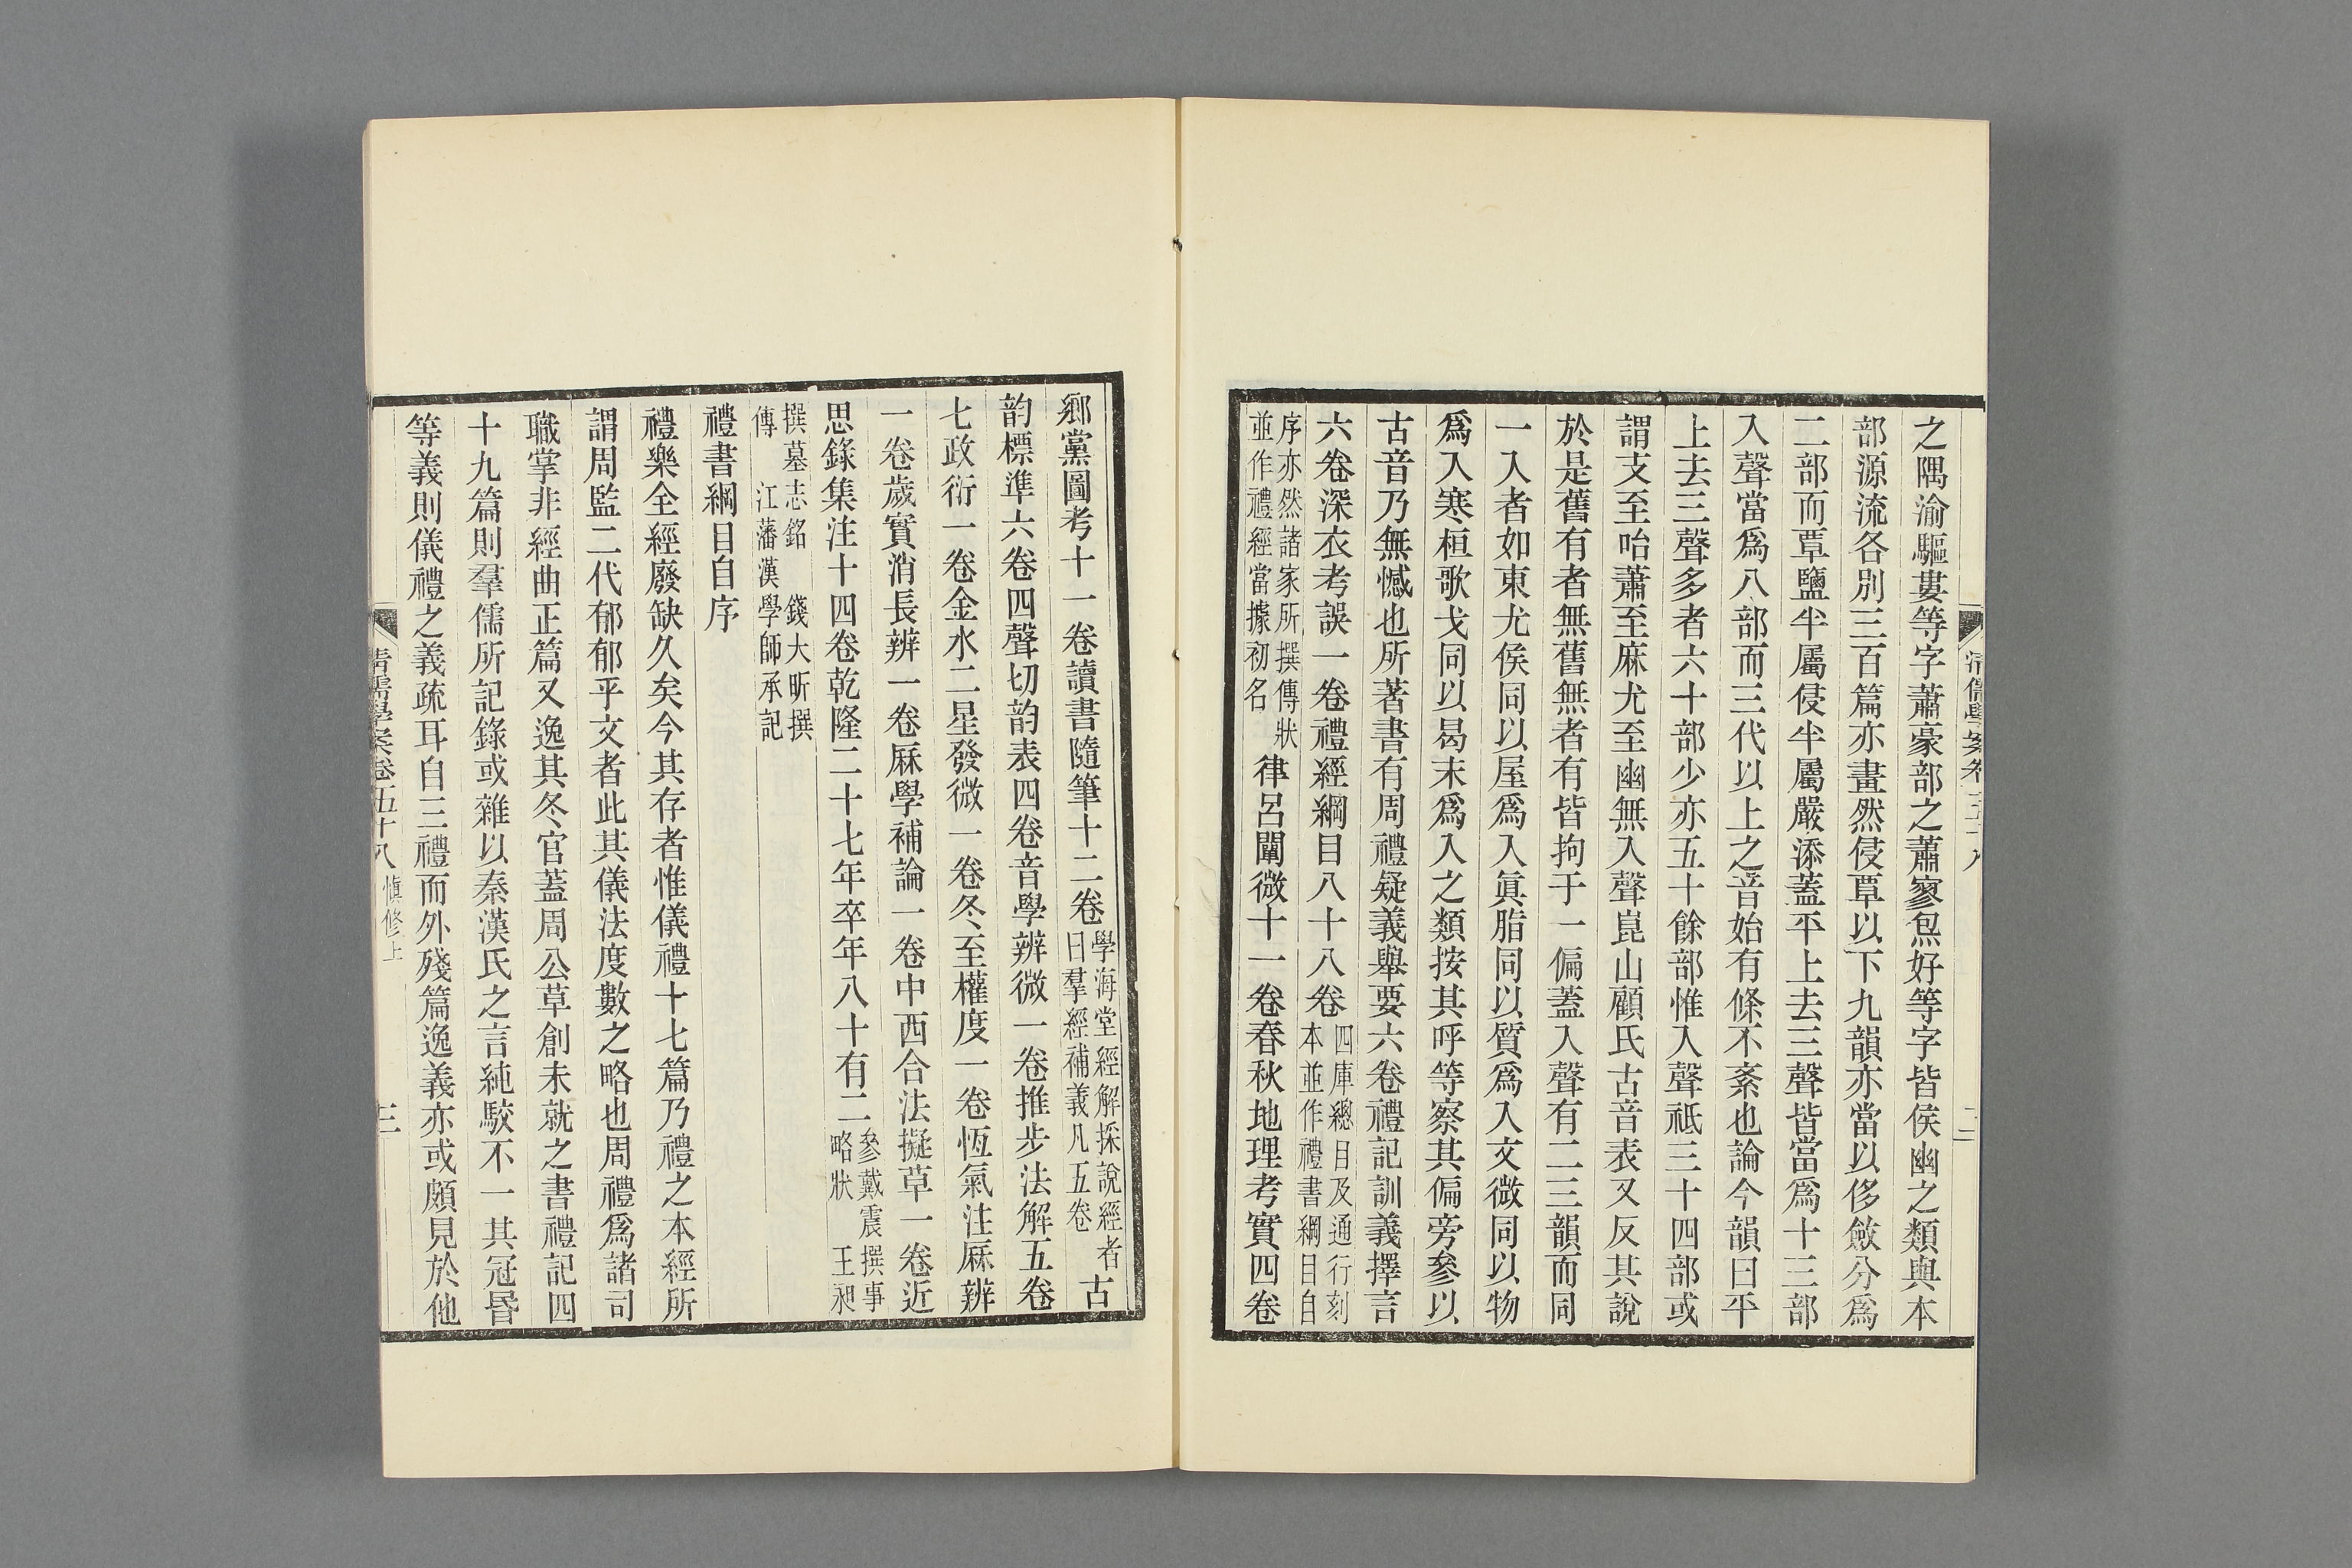 之隅渝驅婁等字蕭豪部之蕭寥炰好等字皆侯幽之類與本
部源流各別三百篇亦畫然侵覃以下九韻亦當以侈斂分爲
二部而覃鹽半屬侵半屬嚴添蓋平上去三聲皆當爲十三部
入聲當爲八部而三代以上之音始有條不紊也論今韻曰平
上去三聲多者六十部少亦五十餘部惟入聲祗三十四部或
謂支至咍蕭至麻尤至幽無入聲崑山顧氏古音表又反其說
於是舊有者無舊無者有皆拘于一偏蓋入聲有二三韻而同
一入者如東尤侯同以屋爲入眞脂同以質爲入文微同以物
爲入寒桓歌戈同以曷末爲入之類按其呼等察其偏旁參以
古音乃無憾也所著書有周禮疑義舉要六卷禮記訓義擇言
六卷深衣考誤一卷禮經綱目八十八卷四庫總目及通行刻
本並作禮書綱目自
序亦然諸家所撰傳狀
並作禮經當據初名
律呂闡微十一卷春秋地理考實四卷
清儒學案卷五十八
二
鄉黨圖考十一卷讀書隨筆十二卷學海堂經解採說經者
曰羣經補義凡五卷
古
韵標準六卷四聲切韵表四卷音學辨微一卷推步法解五卷
七政衍一卷金水二星發微一卷冬至權度一卷恆氣注厤辨
一卷歲實消長辨一卷厤學補論一卷中西合法擬草一卷近
思錄集注十四卷乾隆二十七年卒年八十有二參戴震撰事
略狀 王昶
撰墓志銘 錢大昕撰
傳 江藩漢學師承記
禮書綱目自序
禮樂全經廢缺久矣今其存者惟儀禮十七篇乃禮之本經所
謂周監二代郁郁乎文者此其儀法度數之略也周禮爲諸司
職掌非經曲正篇又逸其冬官蓋周公草創未就之書禮記四
十九篇則羣儒所記錄或雜以秦漢氏之言純駮不一其冠昏
等義則儀禮之義疏耳自三禮而外殘篇逸義亦或頗見於他
清儒學案卷五十八 愼修上
三